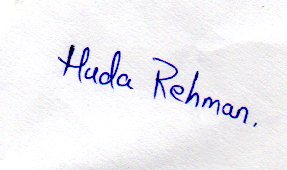 Huda Rehman.